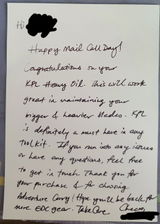 Hi
Happy Mail Call Day!
Congratulations on your
KPL Heavy Oil. This will work
great in maintaining your
bigger & heavier blades. KPL
is definitely a must have in any
toolkit. If you run into any issues
or have any questions, feel free
to get in touch. Thank you for
your purchase & for choosing
Adventure Carry! Hope you'll be back for
more EDC gear. Take Care,